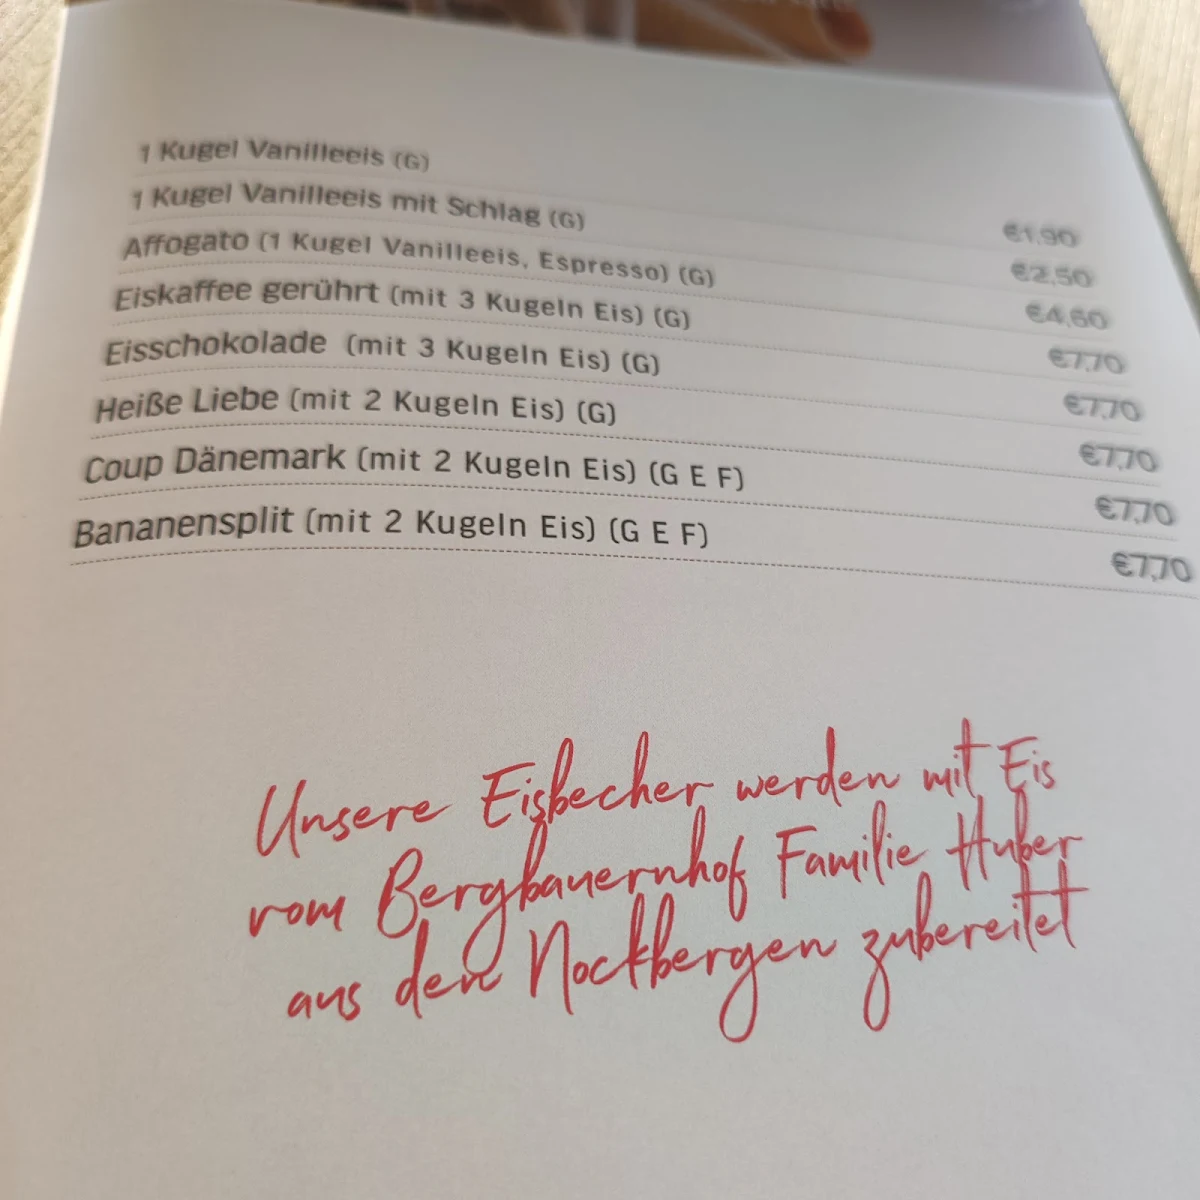 1 Kugel Vanilleeis (G) €1,90
1 Kugel Vanilleeis mit Schlag (G) €2,50
Affogato (1 Kugel Vanilleeis, Espresso) (G) €4,60
Eiskaffee gerührt (mit 3 Kugeln Eis) (G) €7,70
Eisschokolade (mit 3 Kugeln Eis) (G) €7,70
Heiße Liebe (mit 2 Kugeln Eis) (G) €7,70
Coup Dänemark (mit 2 Kugeln Eis) (G E F) €7,70
Bananensplit (mit 2 Kugeln Eis) (G E F) €7,70
Unsere Eisbecher werden mit Eis
vom Bergbauernhof Familie Huber
aus den Nockbergen zubereitet